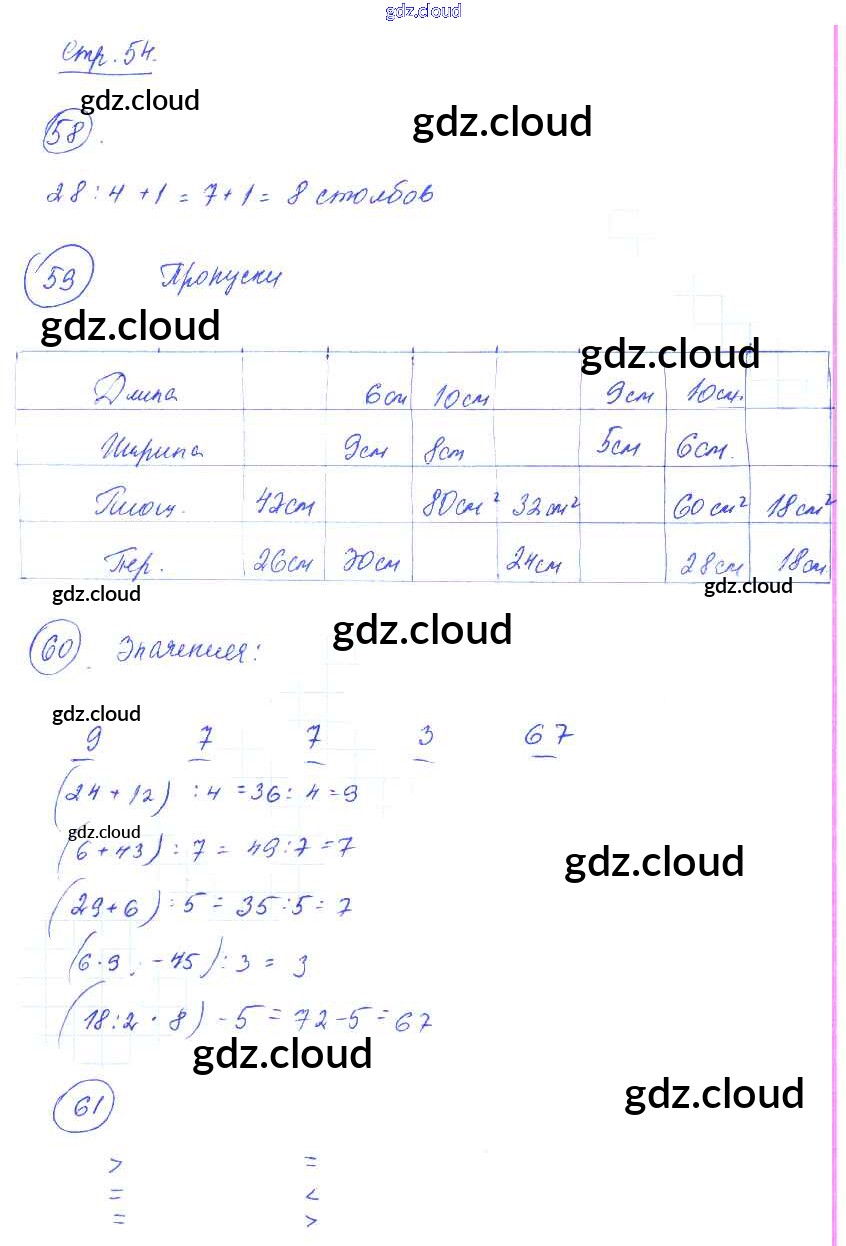 gdz.cloud
Стр. 54.
gdz.cloud
gdz.cloud
58.
28 : 4 + 1 = 7 + 1 = 8 столбов
59 Пропуски
gdz.cloud
gdz.cloud
Длина 6см 10см 9см 10см.
Ширина 9см 8см 5см 6см.
Площ. 42см 80см² 32см² 60см² 18см²
Пер. 26см 30см 24см 28см 18см
gdz.cloud gdz.cloud
60. Значения:
gdz.cloud
gdz.cloud
9 7 7 3 67
(24 + 12) : 4 = 36 : 4 = 9
gdz.cloud
(6 + 43) : 7 = 49 : 7 = 7
gdz.cloud
(29 + 6) : 5 = 35 : 5 = 7
(6 · 9 - 45) : 3 = 3
(18 : 2 · 8) - 5 = 72 - 5 = 67
gdz.cloud
61
gdz.cloud
> =
= <
= >